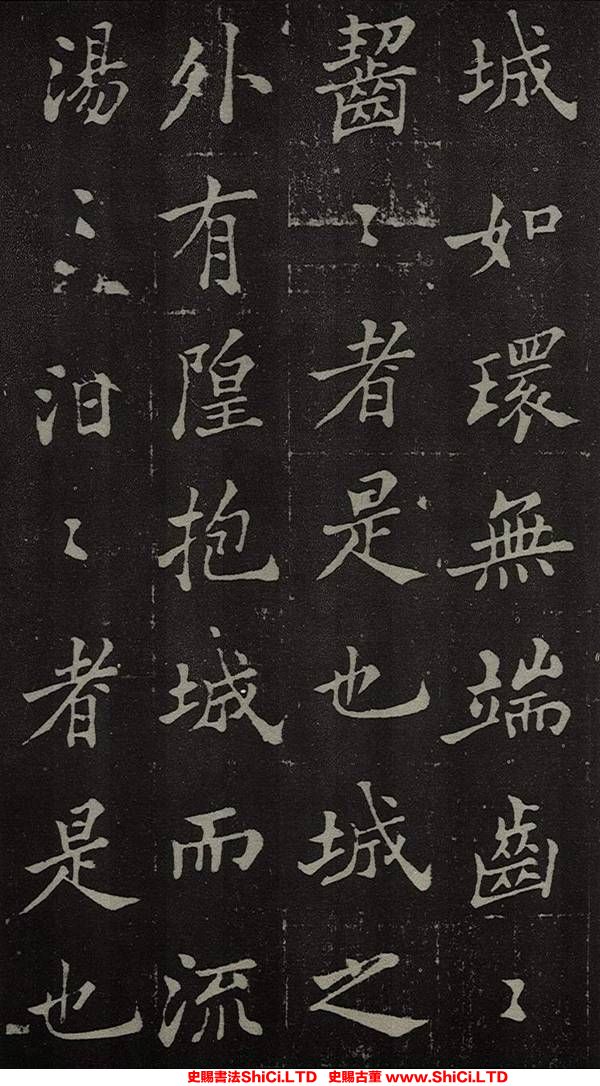 城如環無端齒〻
齧〻者是也城之
外有隍抱城而流
湯〻汩〻者是也
史賜書法ShiCi.LTD 史賜古董 www.ShiCi.LTD